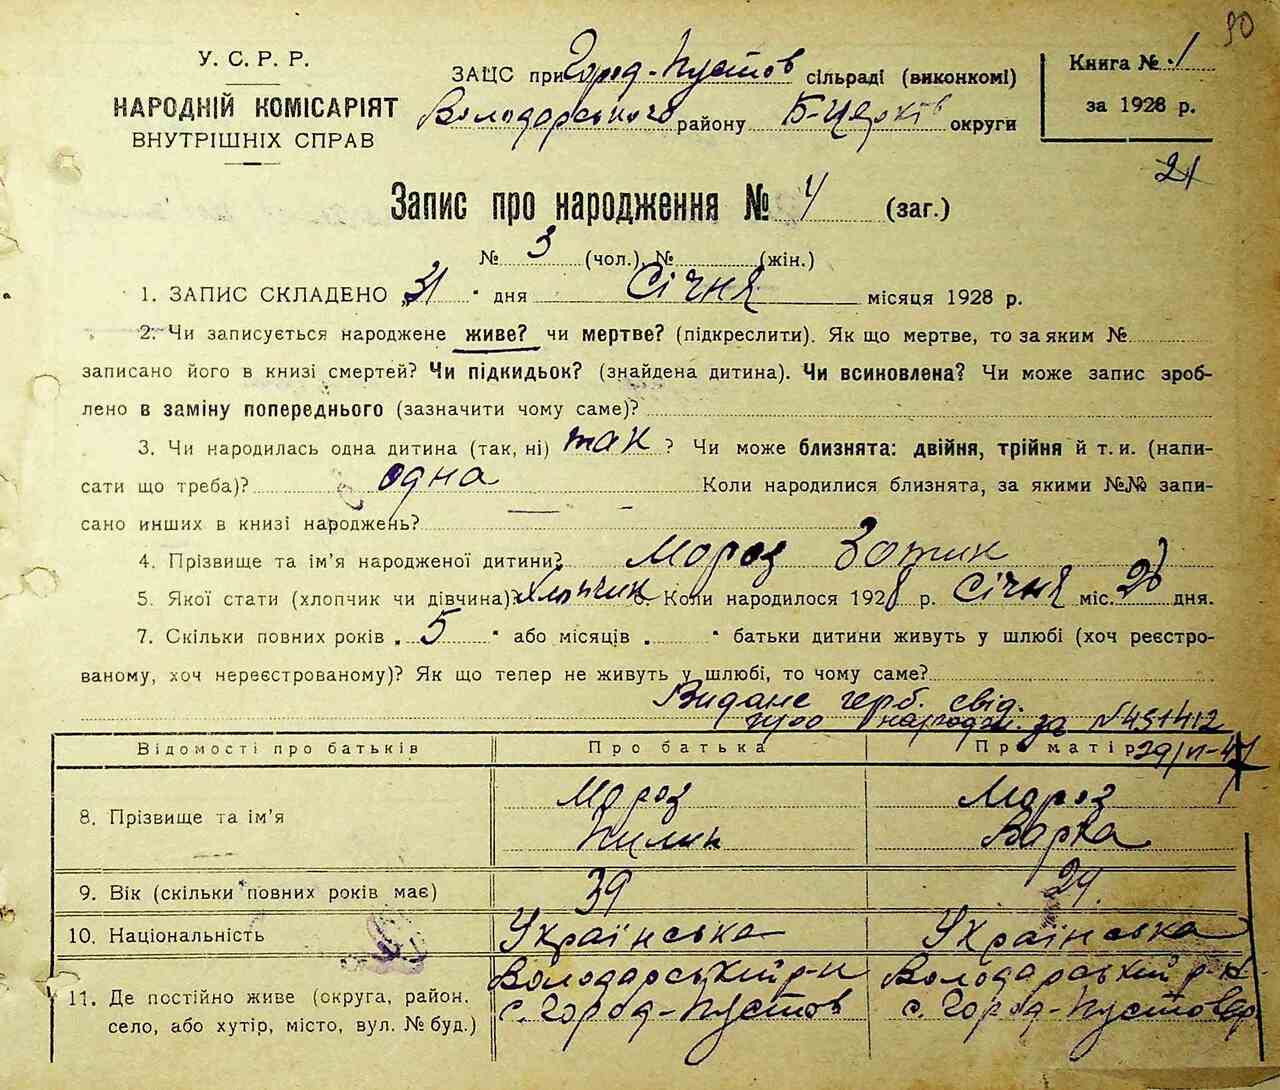 90
У. С. Р. Р.
НАРОДНІЙ КОМІСАРІЯТ
ВНУТРІШНІХ СПРАВ
ЗАЦС при Город-Пустов сільраді (виконкомі)
Володарського району Б-Церків округи
Книга № 1
за 1928 р.
21
Запис про народження № 4 (заг.)
№ 3 (чол.), № (жін.)
1. ЗАПИС СКЛАДЕНО „31" дня Січня місяця 1928 р.
2. Чи записується народжене живе? чи мертве? (підкреслити). Як що мертве, то за яким №
записано його в книзі смертей? Чи підкидьок? (знайдена дитина). Чи всиновлена? Чи може запис зроб-
лено в заміну попереднього (зазначити чому саме)?
3. Чи народилась одна дитина (так, ні) так ? Чи може близнята: двійня, трійня й т. и. (напи-
сати що треба)? одна Коли народилися близнята, за якими №№ запи-
сано инших в книзі народжень?
4. Прізвище та ім'я народженої дитини? Мороз Зотик
5. Якої стати (хлопчик чи дівчина)? Хлопчик 6. Коли народилося 1928 р. Січня міс. дня.
7. Скільки повних років „5" або місяців „ " батьки дитини живуть у шлюбі (хоч реєстро-
ваному, хоч нереєстрованому)? Як що тепер не живуть у шлюбі, то чому саме?
Видане герб. свід.
про народж. за №451412
29/VI-47
Відомості про батьків Про батька Про матір
8. Прізвище та ім'я
Мороз Мороз
Пилип Варка
9. Вік (скільки повних років має) 39 29
10. Національність Українська Українська
11. Де постійно живе (округа, район, село, або хутір, місто, вул. № буд.)
Володарський р-н Володарський р-н
с. Город-Пустов с. Город-Пустовар